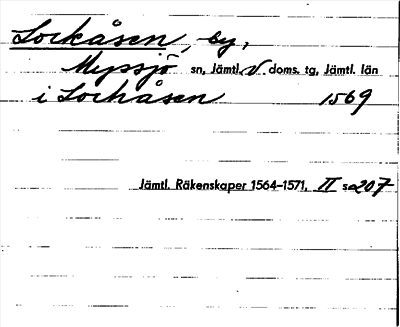 Lockåsen, by,
Myssjö sn, Jämtl. V doms. tg, Jämtl. län
i Lochåsen 1569
Jämtl. Räkenskaper 1564-1571, II s. 207